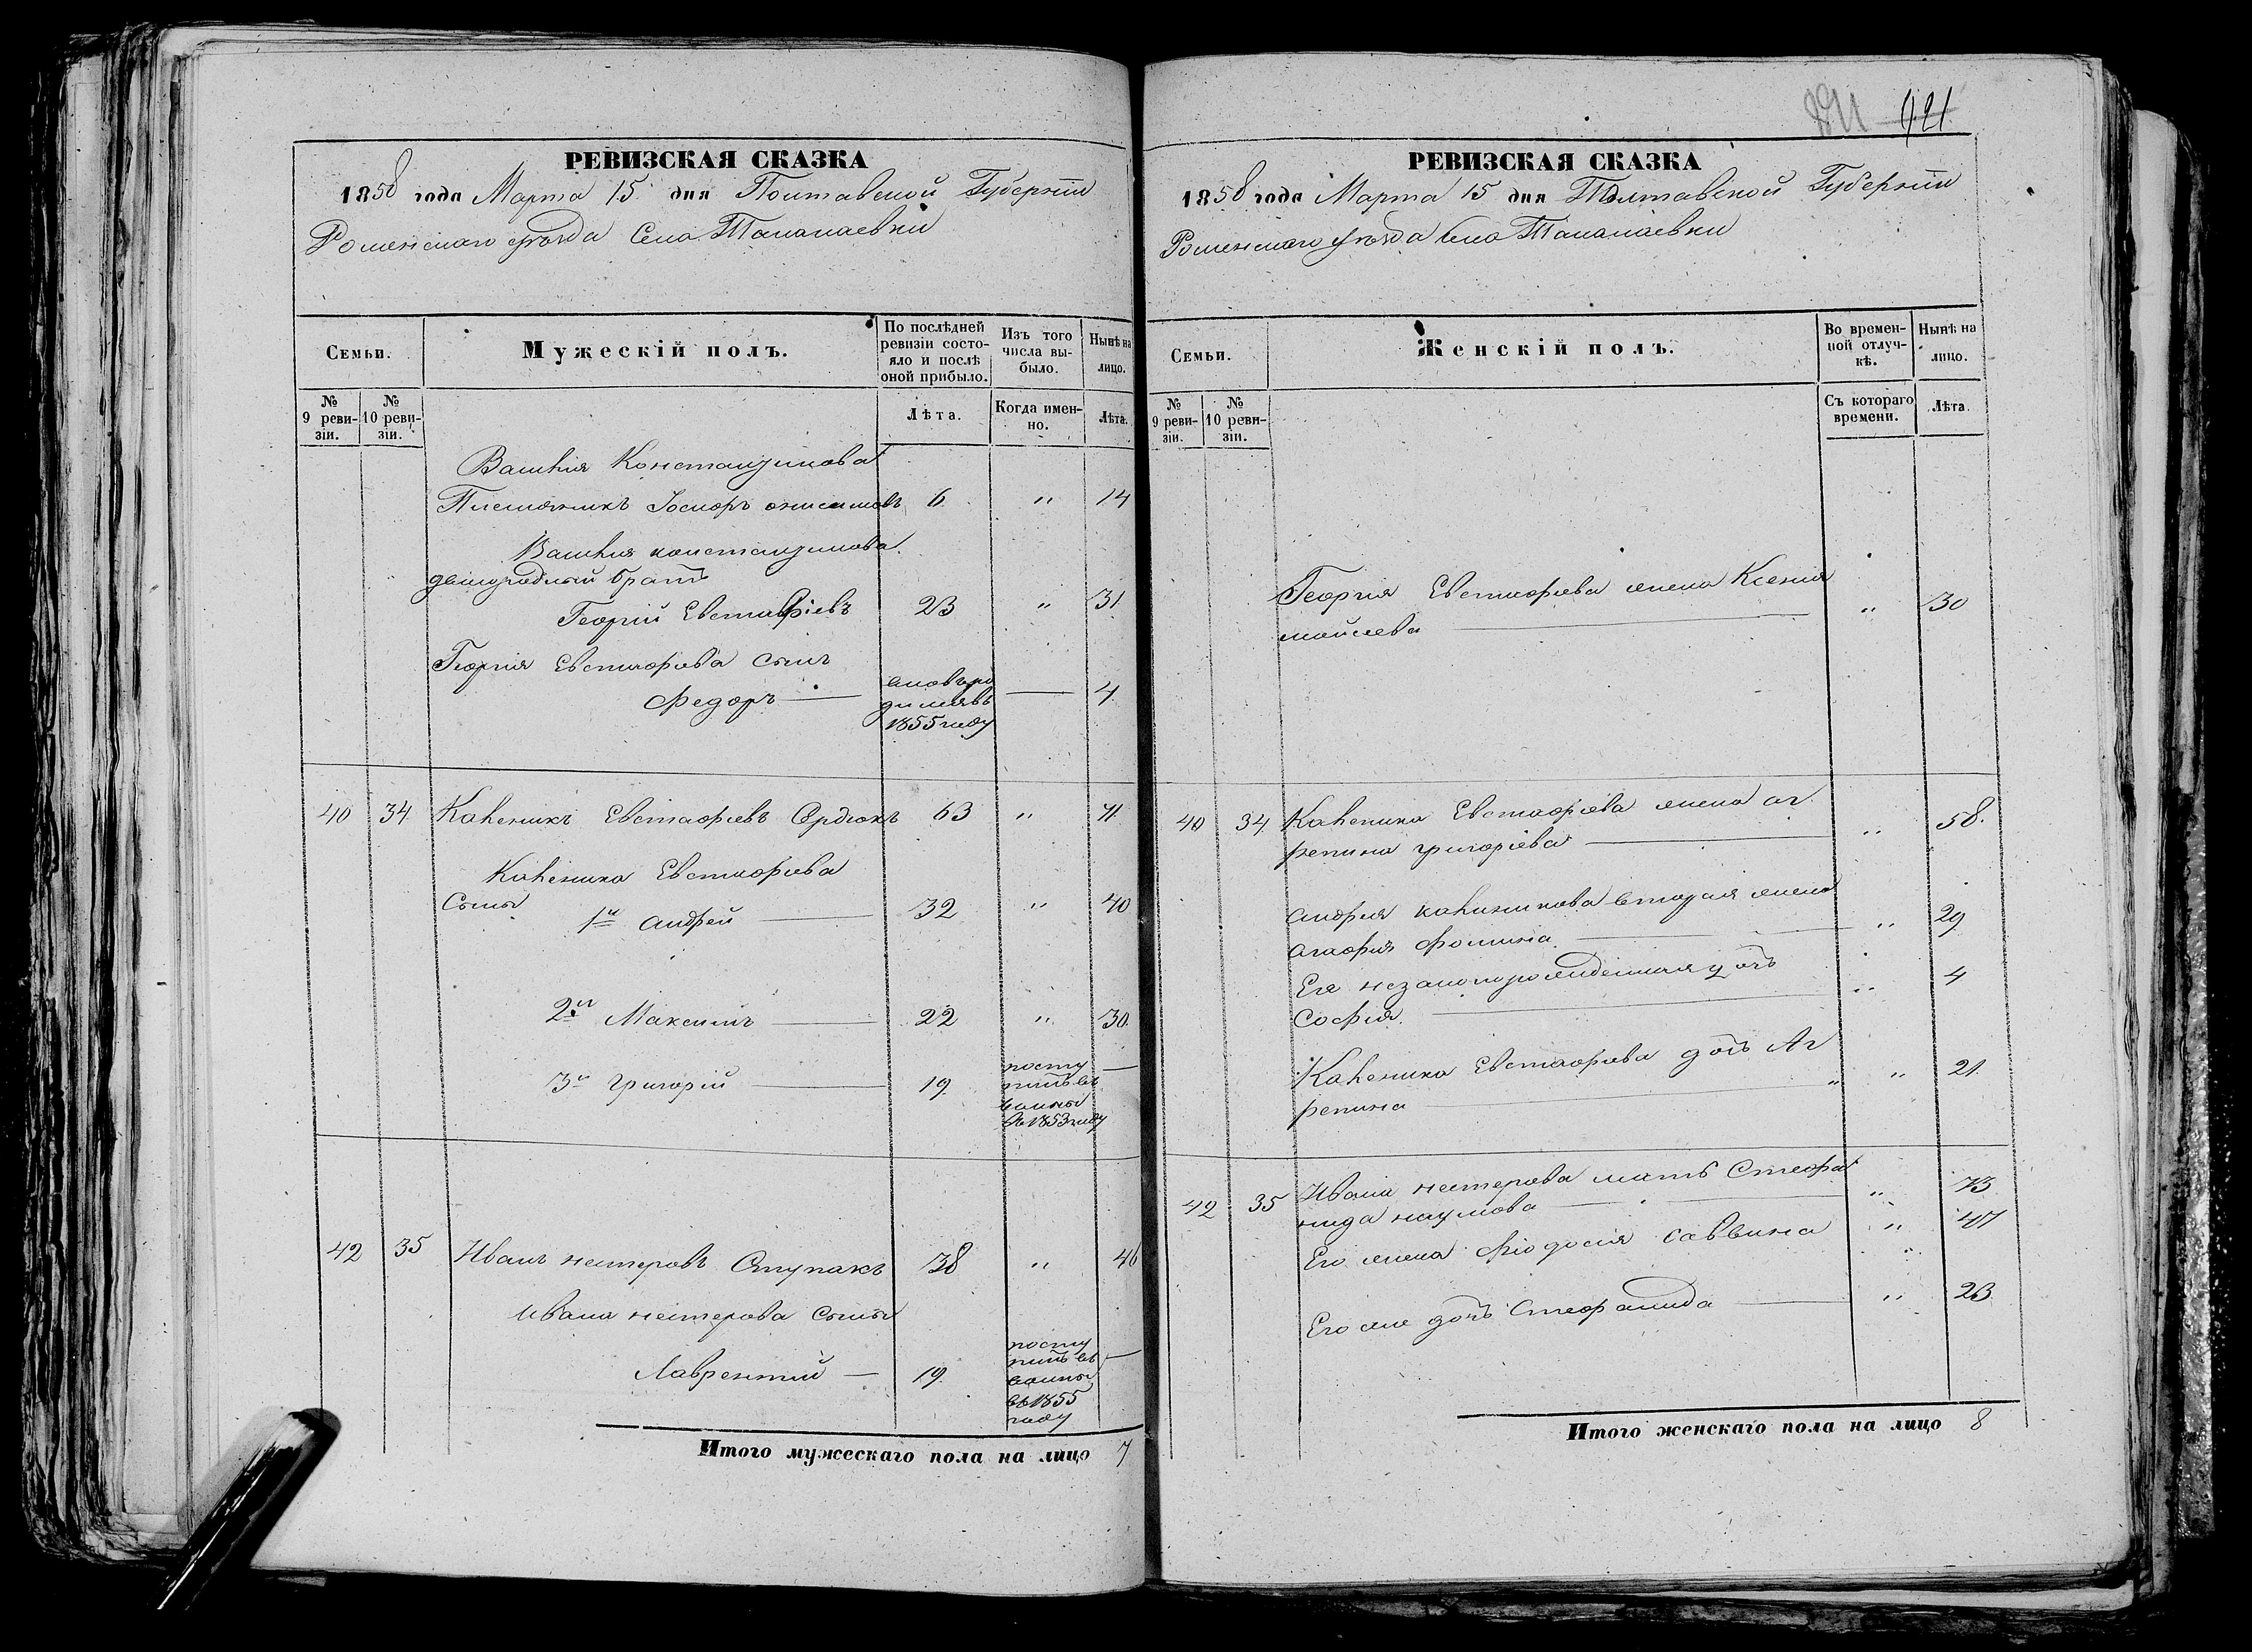 РЕВИЗСКАЯ СКАЗКА
1858 года Марта 15 дня Полтавской Губерніи
Роменскаго уѣзда Села Талалаевки
Семьи.
Мужескій полъ.
По послѣдней ревизіи состояло и послѣ оной прибыло.
Изъ того числа выбыло.
Нынѣ на лицо.
№ 9 ревизіи.
№ 10 ревизіи.
Лѣта.
Когда именно.
Лѣта.
Константинова
Племянникъ Анисимовъ 6 " 14
Константинова
двоюродный братъ
Георгій Евстафіевъ 23 " 31
Георгія Евстафіева сынъ
Федоръ — вновь родился въ 1855 году — 4
40 34 Каленикъ Евстафіевъ Сердюкъ 63 " 71
Каленика Евстафіева
Сыны
1й Андрей — 32 " 40
2й Максимъ — 22 " 30
3й Григорій — 19 поступилъ въ воины въ 1853 году —
42 35 Иванъ Нестеровъ Ступакъ 38 " 46
Ивана Нестерова Сынъ
Лаврентий — 19 поступилъ въ воины въ 1855 году —
Итого мужескаго пола на лицо 7
121
РЕВИЗСКАЯ СКАЗКА
1858 года Марта 15 дня Полтавской Губерніи
Роменскаго уѣзда Села Талалаевки
Семьи.
Женскій полъ.
Во временной отлучкѣ.
Нынѣ на лицо.
№ 9 ревизіи.
№ 10 ревизіи.
Съ котораго времени.
Лѣта.
Георгія Евстафіева жена Ксенія
Моисеева — " 30
40 34 Каленика Евстафіева жена Аг
репина Григоріева — " 58
Андрея Каленикова вторая жена
Агафия Фомина — " 29
Ея незаконорожденная дочь
София — " 4
Каленика Евстафіева дочь Аг
репина — " 21
42 35 Ивана Нестерова мать Стефа
нида Наумова — " 73
Его жена Фіодосия Саввина " 47
Его же дочь Стефанида — " 23
Итого женскаго пола на лицо 8